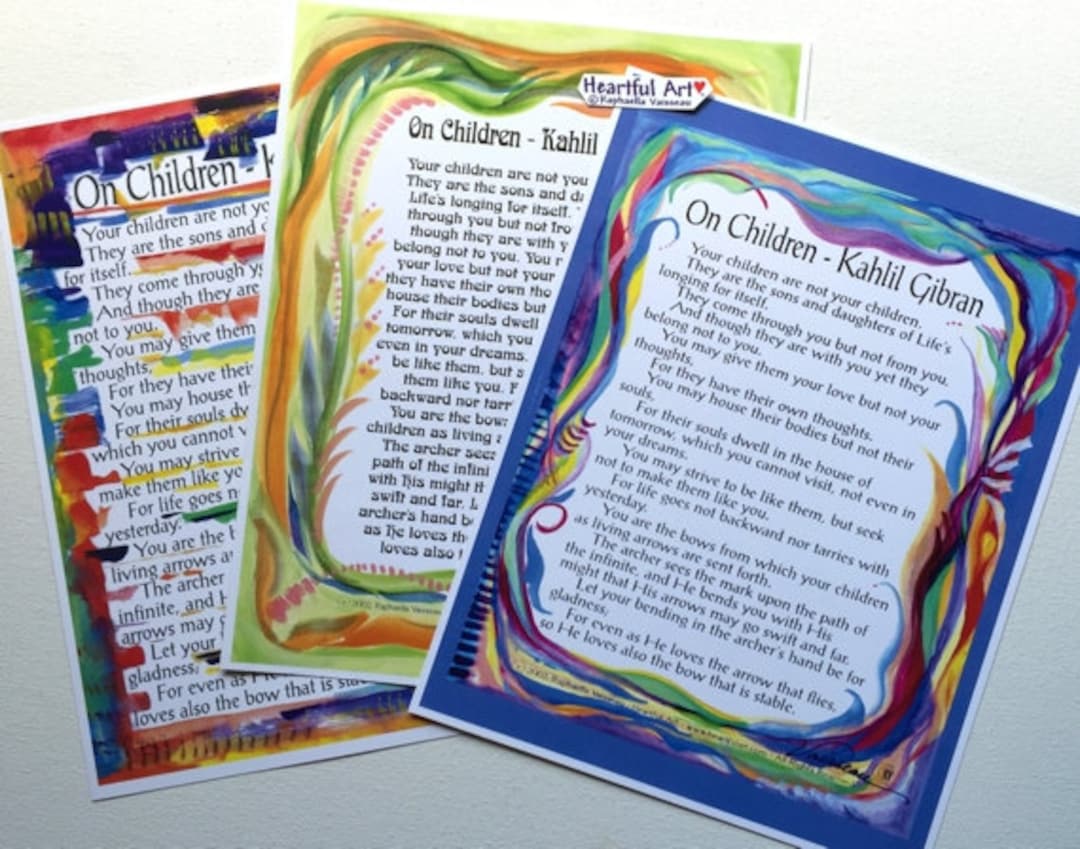 On Children - K
Your children are not yo
They are the sons and d
for itself.
They come through y
And though they are
not to you.
You may give them
thoughts,
For they have their
You may house th
For their souls dw
which you cannot v
You may strive
make them like yo
For life goes n
yesterday.
You are the b
living arrows a
The archer
infinite, and H
arrows may g
Let your
gladness;
For even as He
loves also the bow that is sta
On Children - Kahlil
Your children are not you
They are the sons and da
Life's longing for itself.
through you but not fro
though they are with y
belong not to you. You
your love but not your
they have their own tho
house their bodies but
For their souls dwell
tomorrow, which you
even in your dreams.
be like them, but s
them like you. F
backward nor tarr
You are the bow
children as living a
The archer sees
path of the infini
with His might th
swift and far. L
archer's hand be
as He loves th
loves also t
Heartful Art
© Raphaella Vaisseau
On Children - Kahlil Gibran
Your children are not your children.
They are the sons and daughters of Life's
longing for itself.
They come through you but not from you,
And though they are with you yet they
belong not to you.
You may give them your love but not your
thoughts,
For they have their own thoughts.
You may house their bodies but not their
souls,
For their souls dwell in the house of
tomorrow, which you cannot visit, not even in
your dreams.
You may strive to be like them, but seek
not to make them like you.
For life goes not backward nor tarries with
yesterday.
You are the bows from which your children
as living arrows are sent forth.
The archer sees the mark upon the path of
the infinite, and He bends you with His
might that His arrows may go swift and far.
Let your bending in the archer's hand be for
gladness;
For even as He loves the arrow that flies,
so He loves also the bow that is stable.
Raphaella Vaisseau - Heartful Art - www.heartfulart.com - All Rights